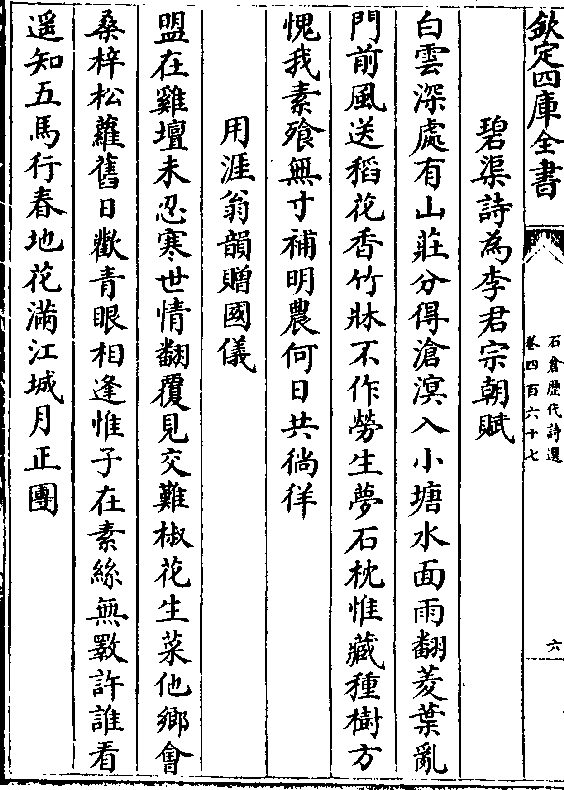 欽定四庫全書
石倉歴代詩選
卷四百六十七
六
碧渠詩為李君宗朝賦
白雲深處有山莊分得滄溟入小塘水面雨翻菱葉亂
門前風送稻花香竹牀不作勞生夢石枕惟藏種樹方
愧我素飱無寸補明農何日共徜徉
用涯翁韻贈國儀
盟在雞壇未忍寒世情翻覆見交難椒花生菜他鄉會
桑梓松蘿舊日歡青眼相逢惟子在素絲無斁許誰看
遥知五馬行春地花滿江城月正團